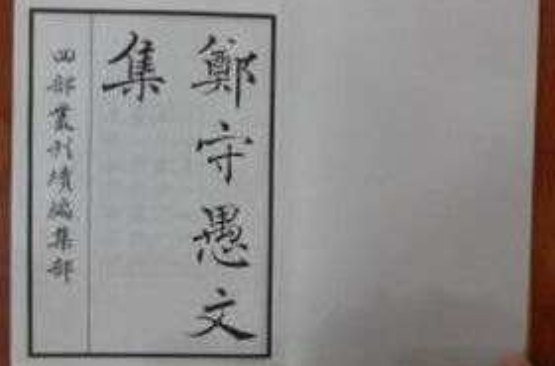 鄭守愚文
集
四部叢刊續編集部